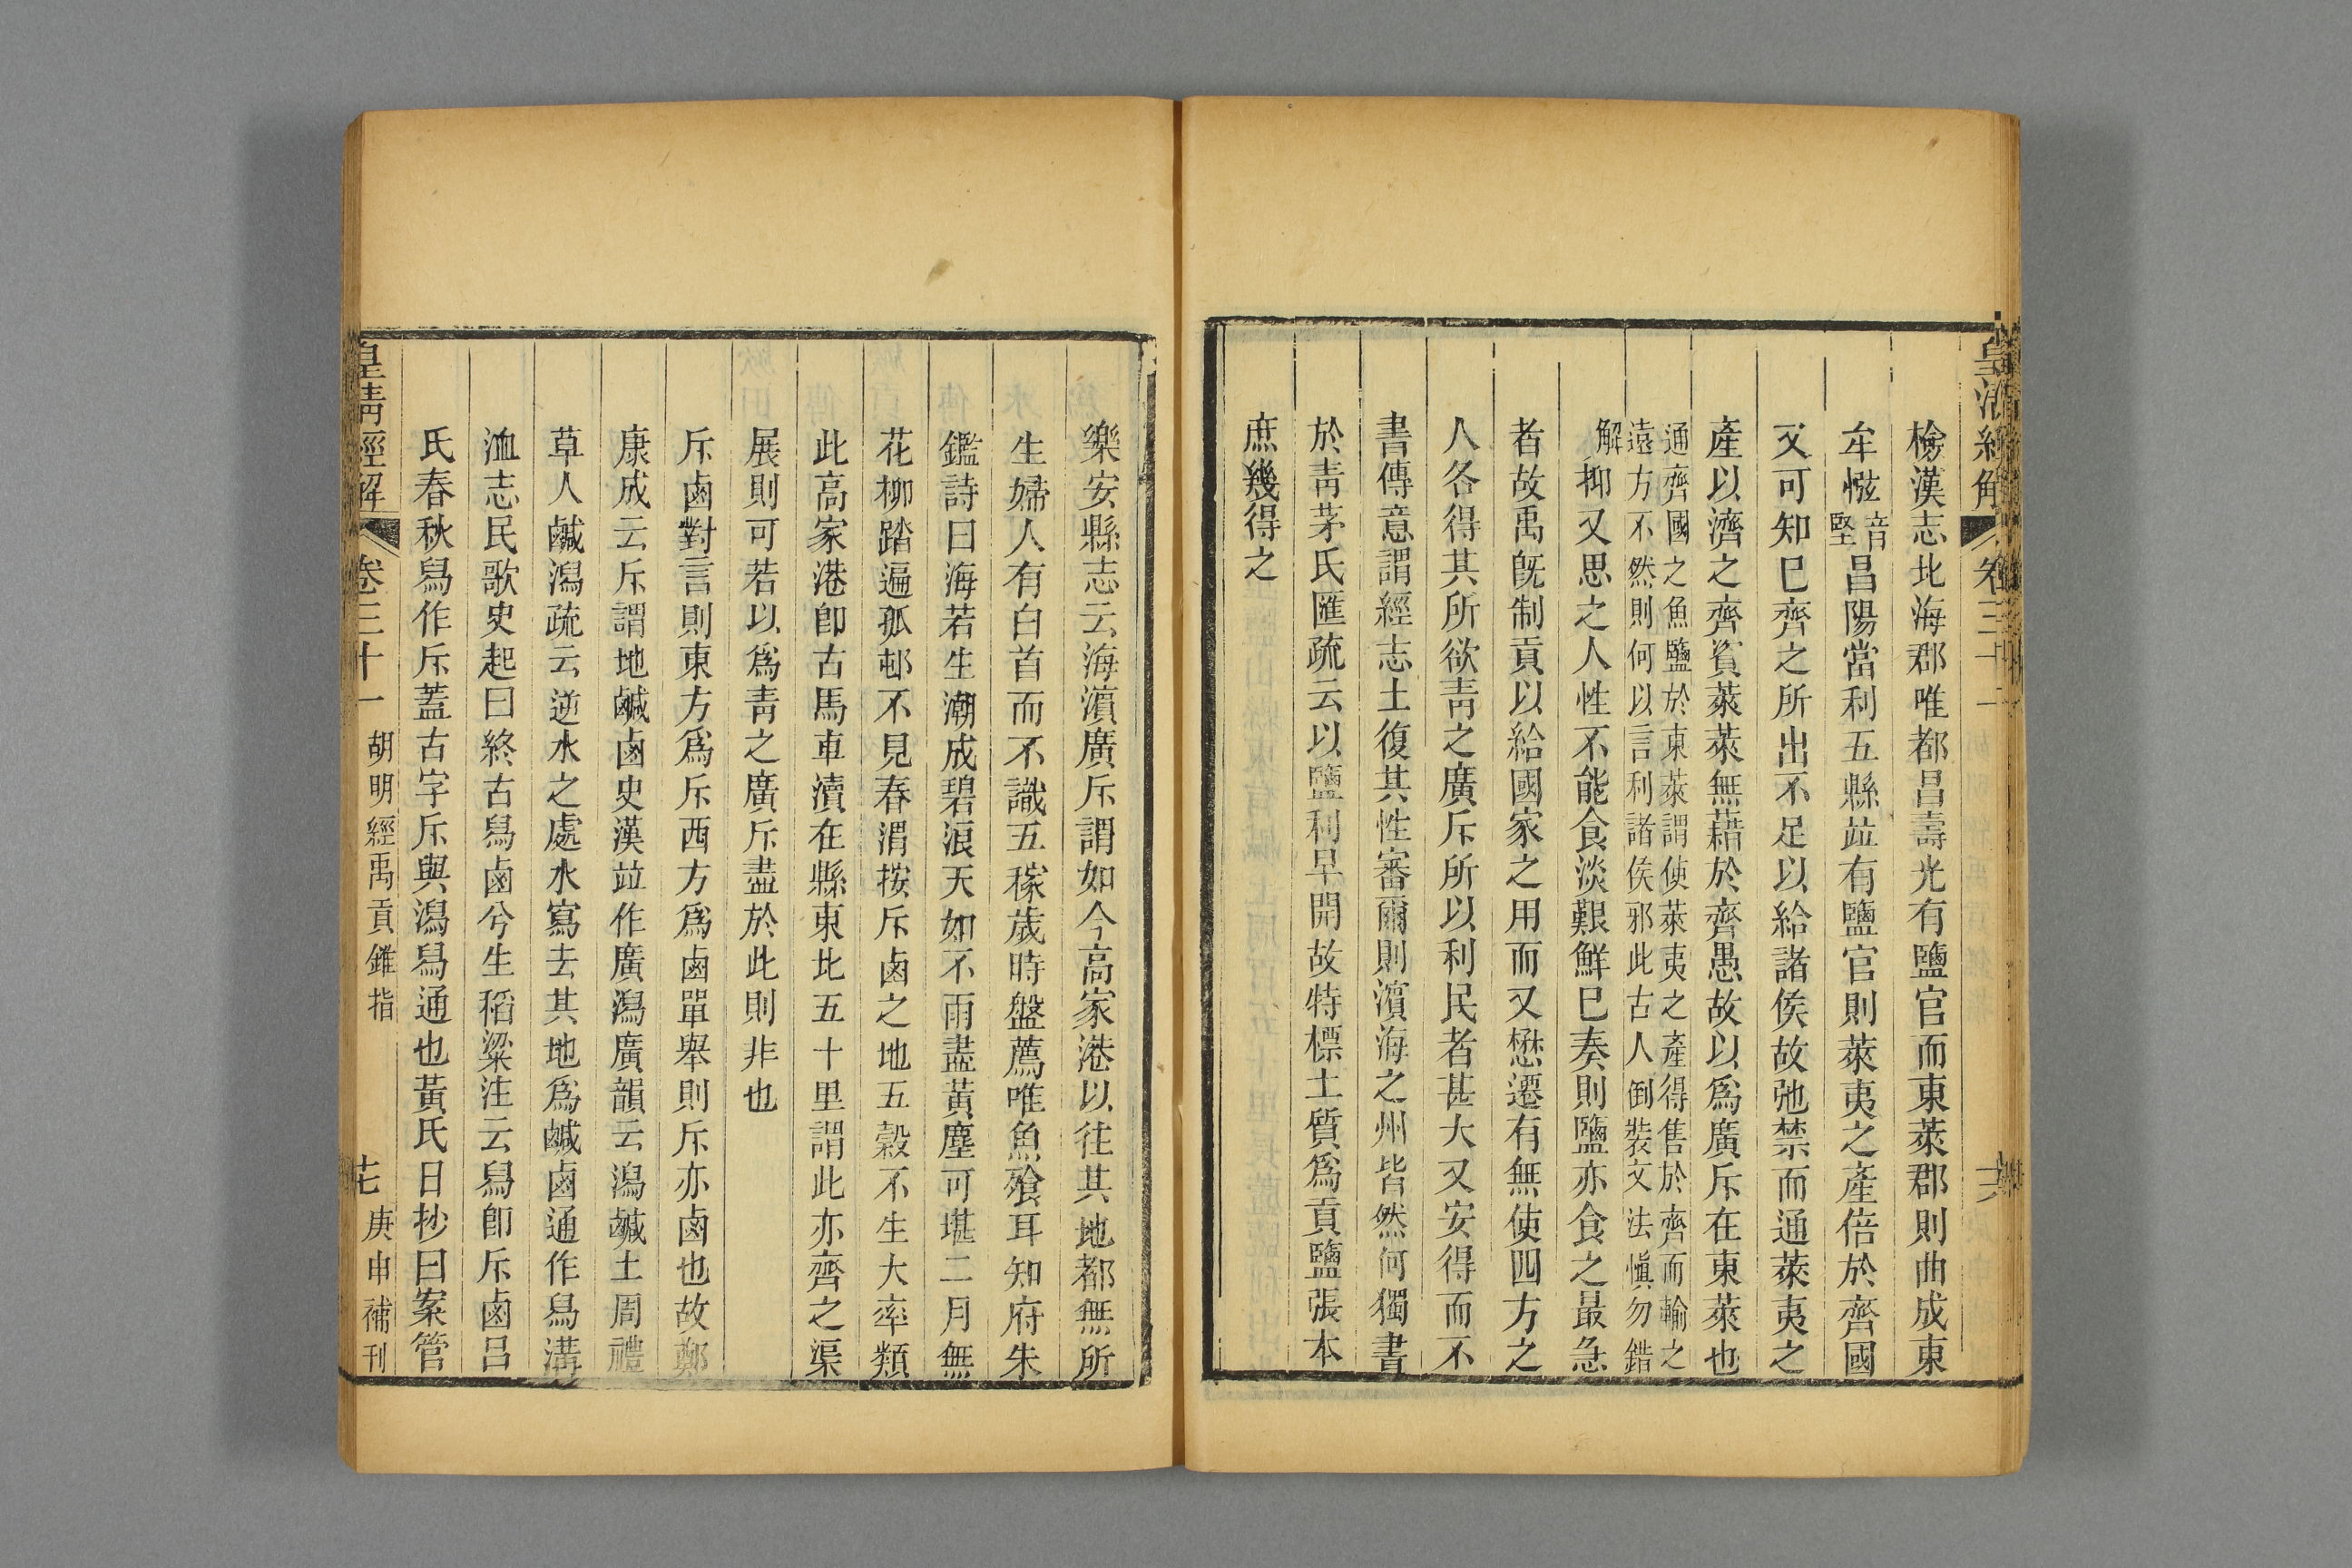 檢漢志北海郡唯都昌壽光有鹽官而東萊郡則曲成東
牟㡉音堅昌陽當利五縣竝有鹽官則萊夷之產倍於齊國
又可知已齊之所出不足以給諸侯故弛禁而通萊夷之
產以濟之齊資萊萊無藉於齊愚故以爲廣斥在東萊也
通齊國之魚鹽於東萊謂使萊夷之產得售於齊而輸之
遠方不然則何以言利諸侯邪此古人倒裝文法愼勿錯
解抑又思之人性不能食淡艱鮮已奏則鹽亦食之最急
者故禹旣制貢以給國家之用而又懋遷有無使四方之
人各得其所欲靑之廣斥所以利民者甚大又安得而不
書傳意謂經志土復其性審爾則濱海之州皆然何獨書
於靑茅氏匯疏云以鹽利早開故特標土質爲貢鹽張本
庶幾得之
樂安縣志云海濱廣斥謂如今高家港以往其地都無所
生婦人有白首而不識五稼歲時盤薦唯魚飱耳知府朱
鑑詩曰海若生潮成碧浪天如不雨盡黃塵可堪二月無
花柳踏遍孤邨不見春渭按斥鹵之地五穀不生大率類
此高家港卽古馬車瀆在縣東北五十里謂此亦齊之渠
展則可若以爲靑之廣斥盡於此則非也
斥鹵對言則東方爲斥西方爲鹵單舉則斥亦鹵也故鄭
康成云斥謂地鹹鹵史漢竝作廣潟廣韻云潟鹹土周禮
草人鹹潟疏云逆水之處水寫去其地爲鹹鹵通作舄溝
洫志民歌史起曰終古舄鹵兮生稻粱注云舄卽斥鹵呂
氏春秋舄作斥蓋古字斥與潟舄通也黃氏日抄曰案管
皇清經解 卷三十一 胡明經禹貢錐指 七 庚申補刊